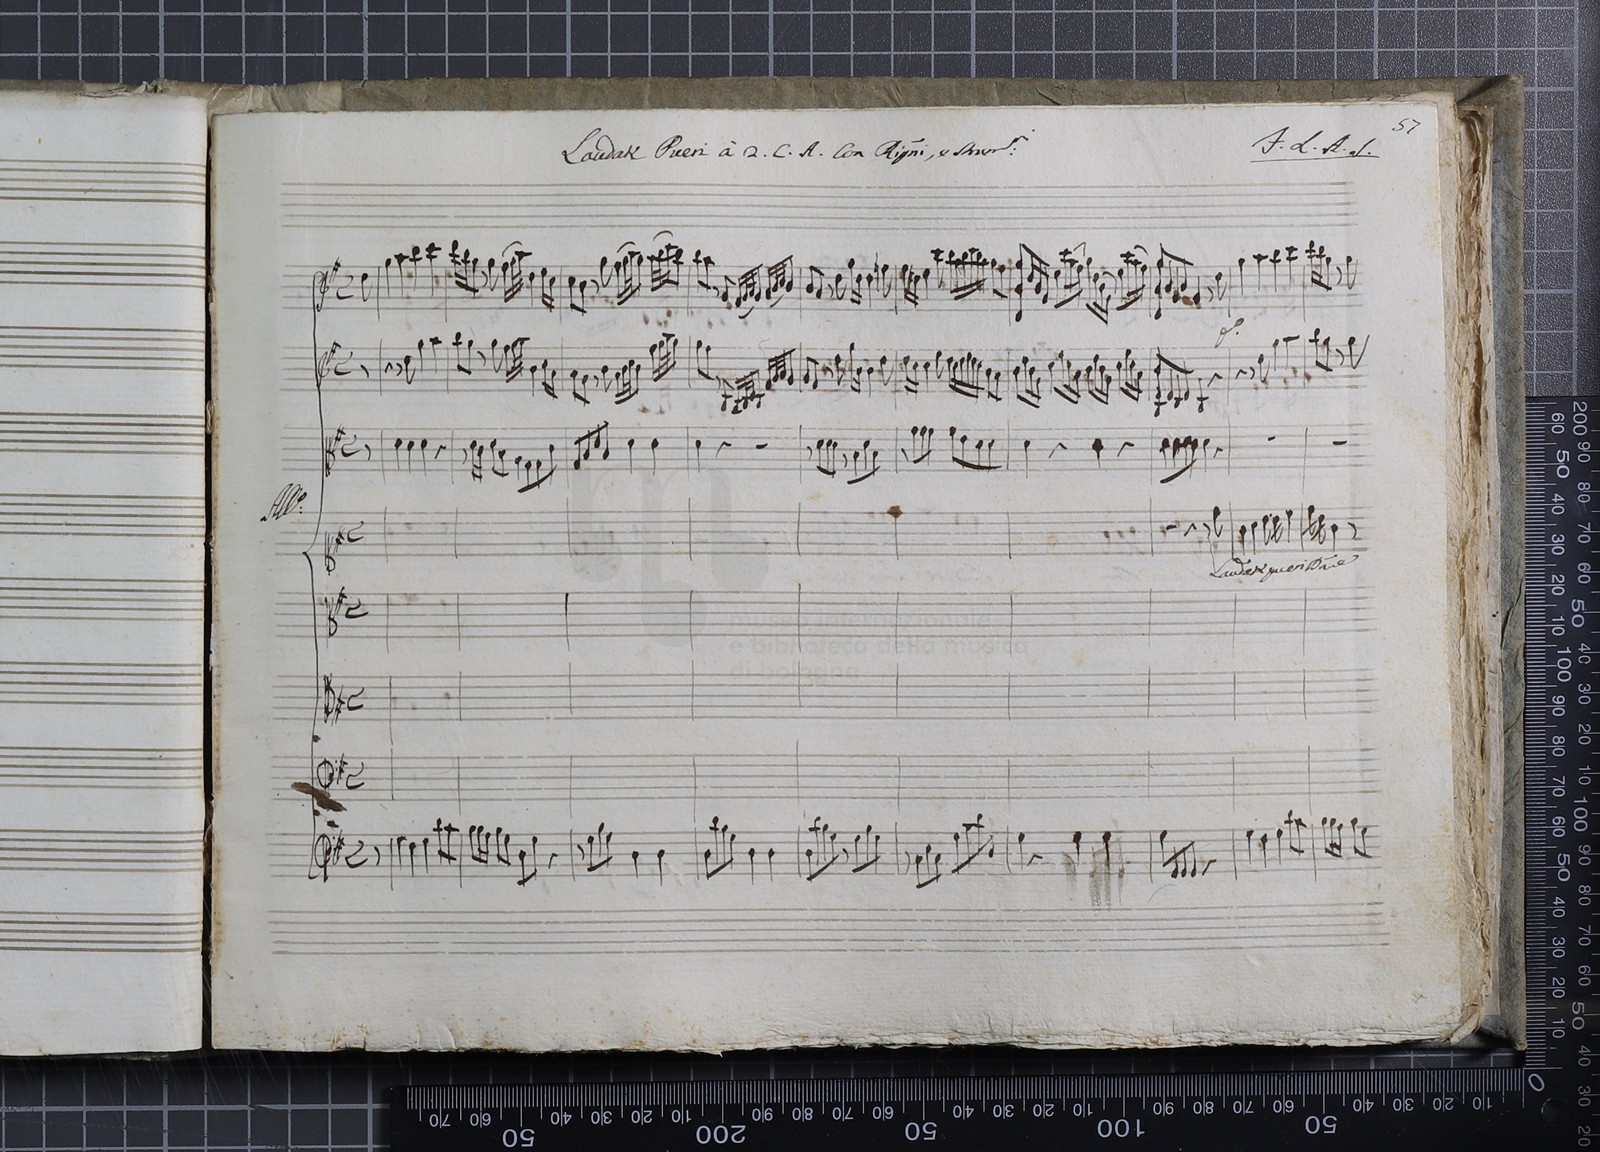 57
Laudate Pueri à 2. C. A. Con Rip̃ni, e Strum.ti
J. L. A. S.
All.o
Laudate pueri Dñe
museo internazionale
e biblioteca della musica
di bologna